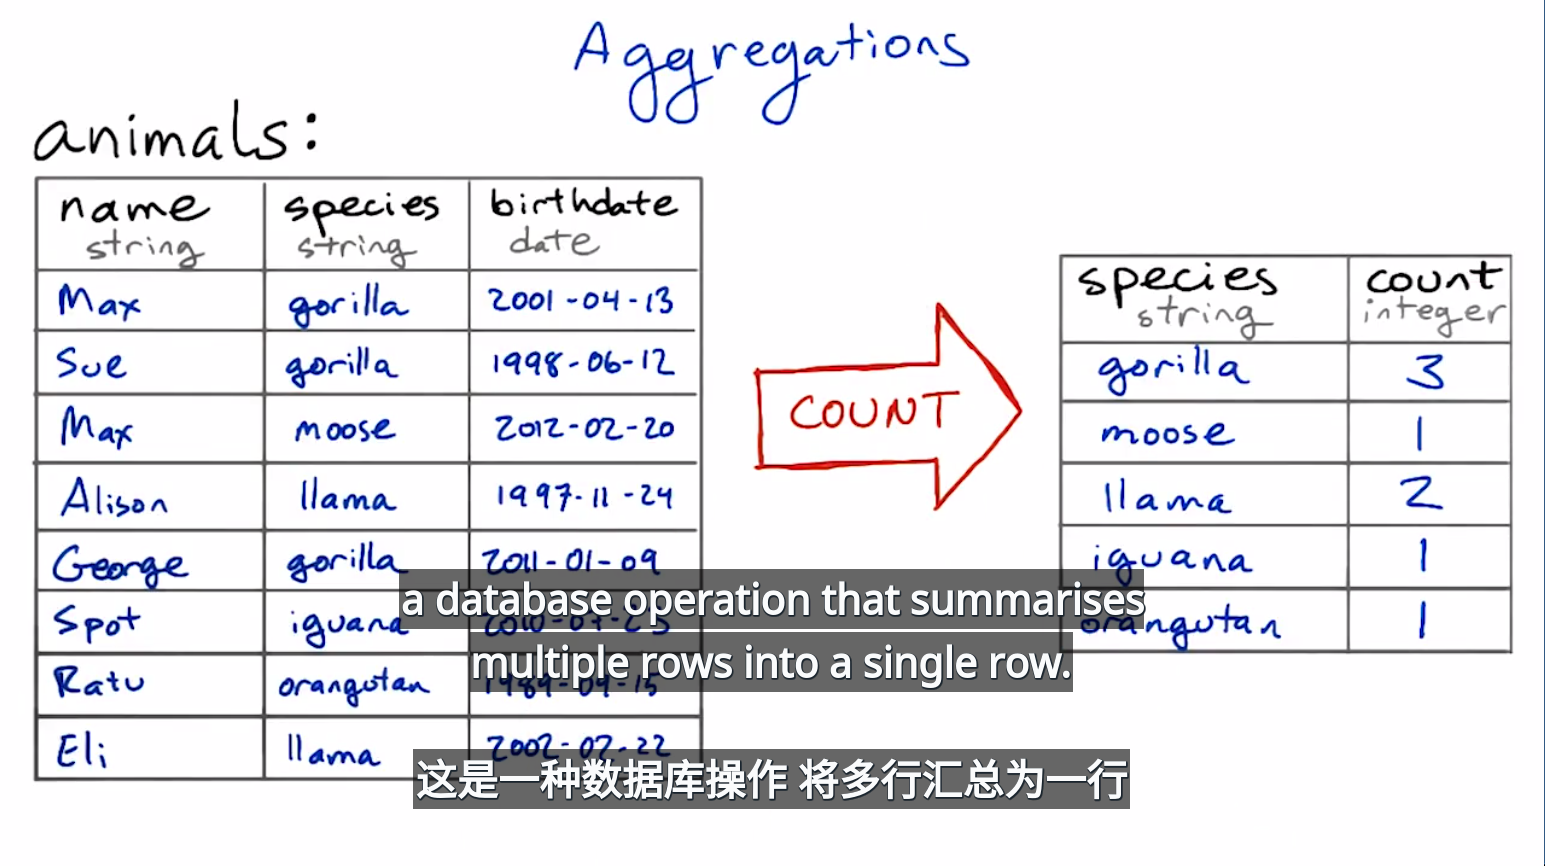 Aggregations
animals:
name species birthdate
string string date
Max gorilla 2001-04-13
Sue gorilla 1998-06-12
Max moose 2012-02-20
Alison llama 1997-11-24
George gorilla 2011-01-09
Spot iguana
Ratu orangutan 1989-09-15
Eli llama 2002-02-22
COUNT
species count
string integer
gorilla 3
moose 1
llama 2
iguana 1
orangutan 1
a database operation that summarises
multiple rows into a single row.
这是一种数据库操作 将多行汇总为一行